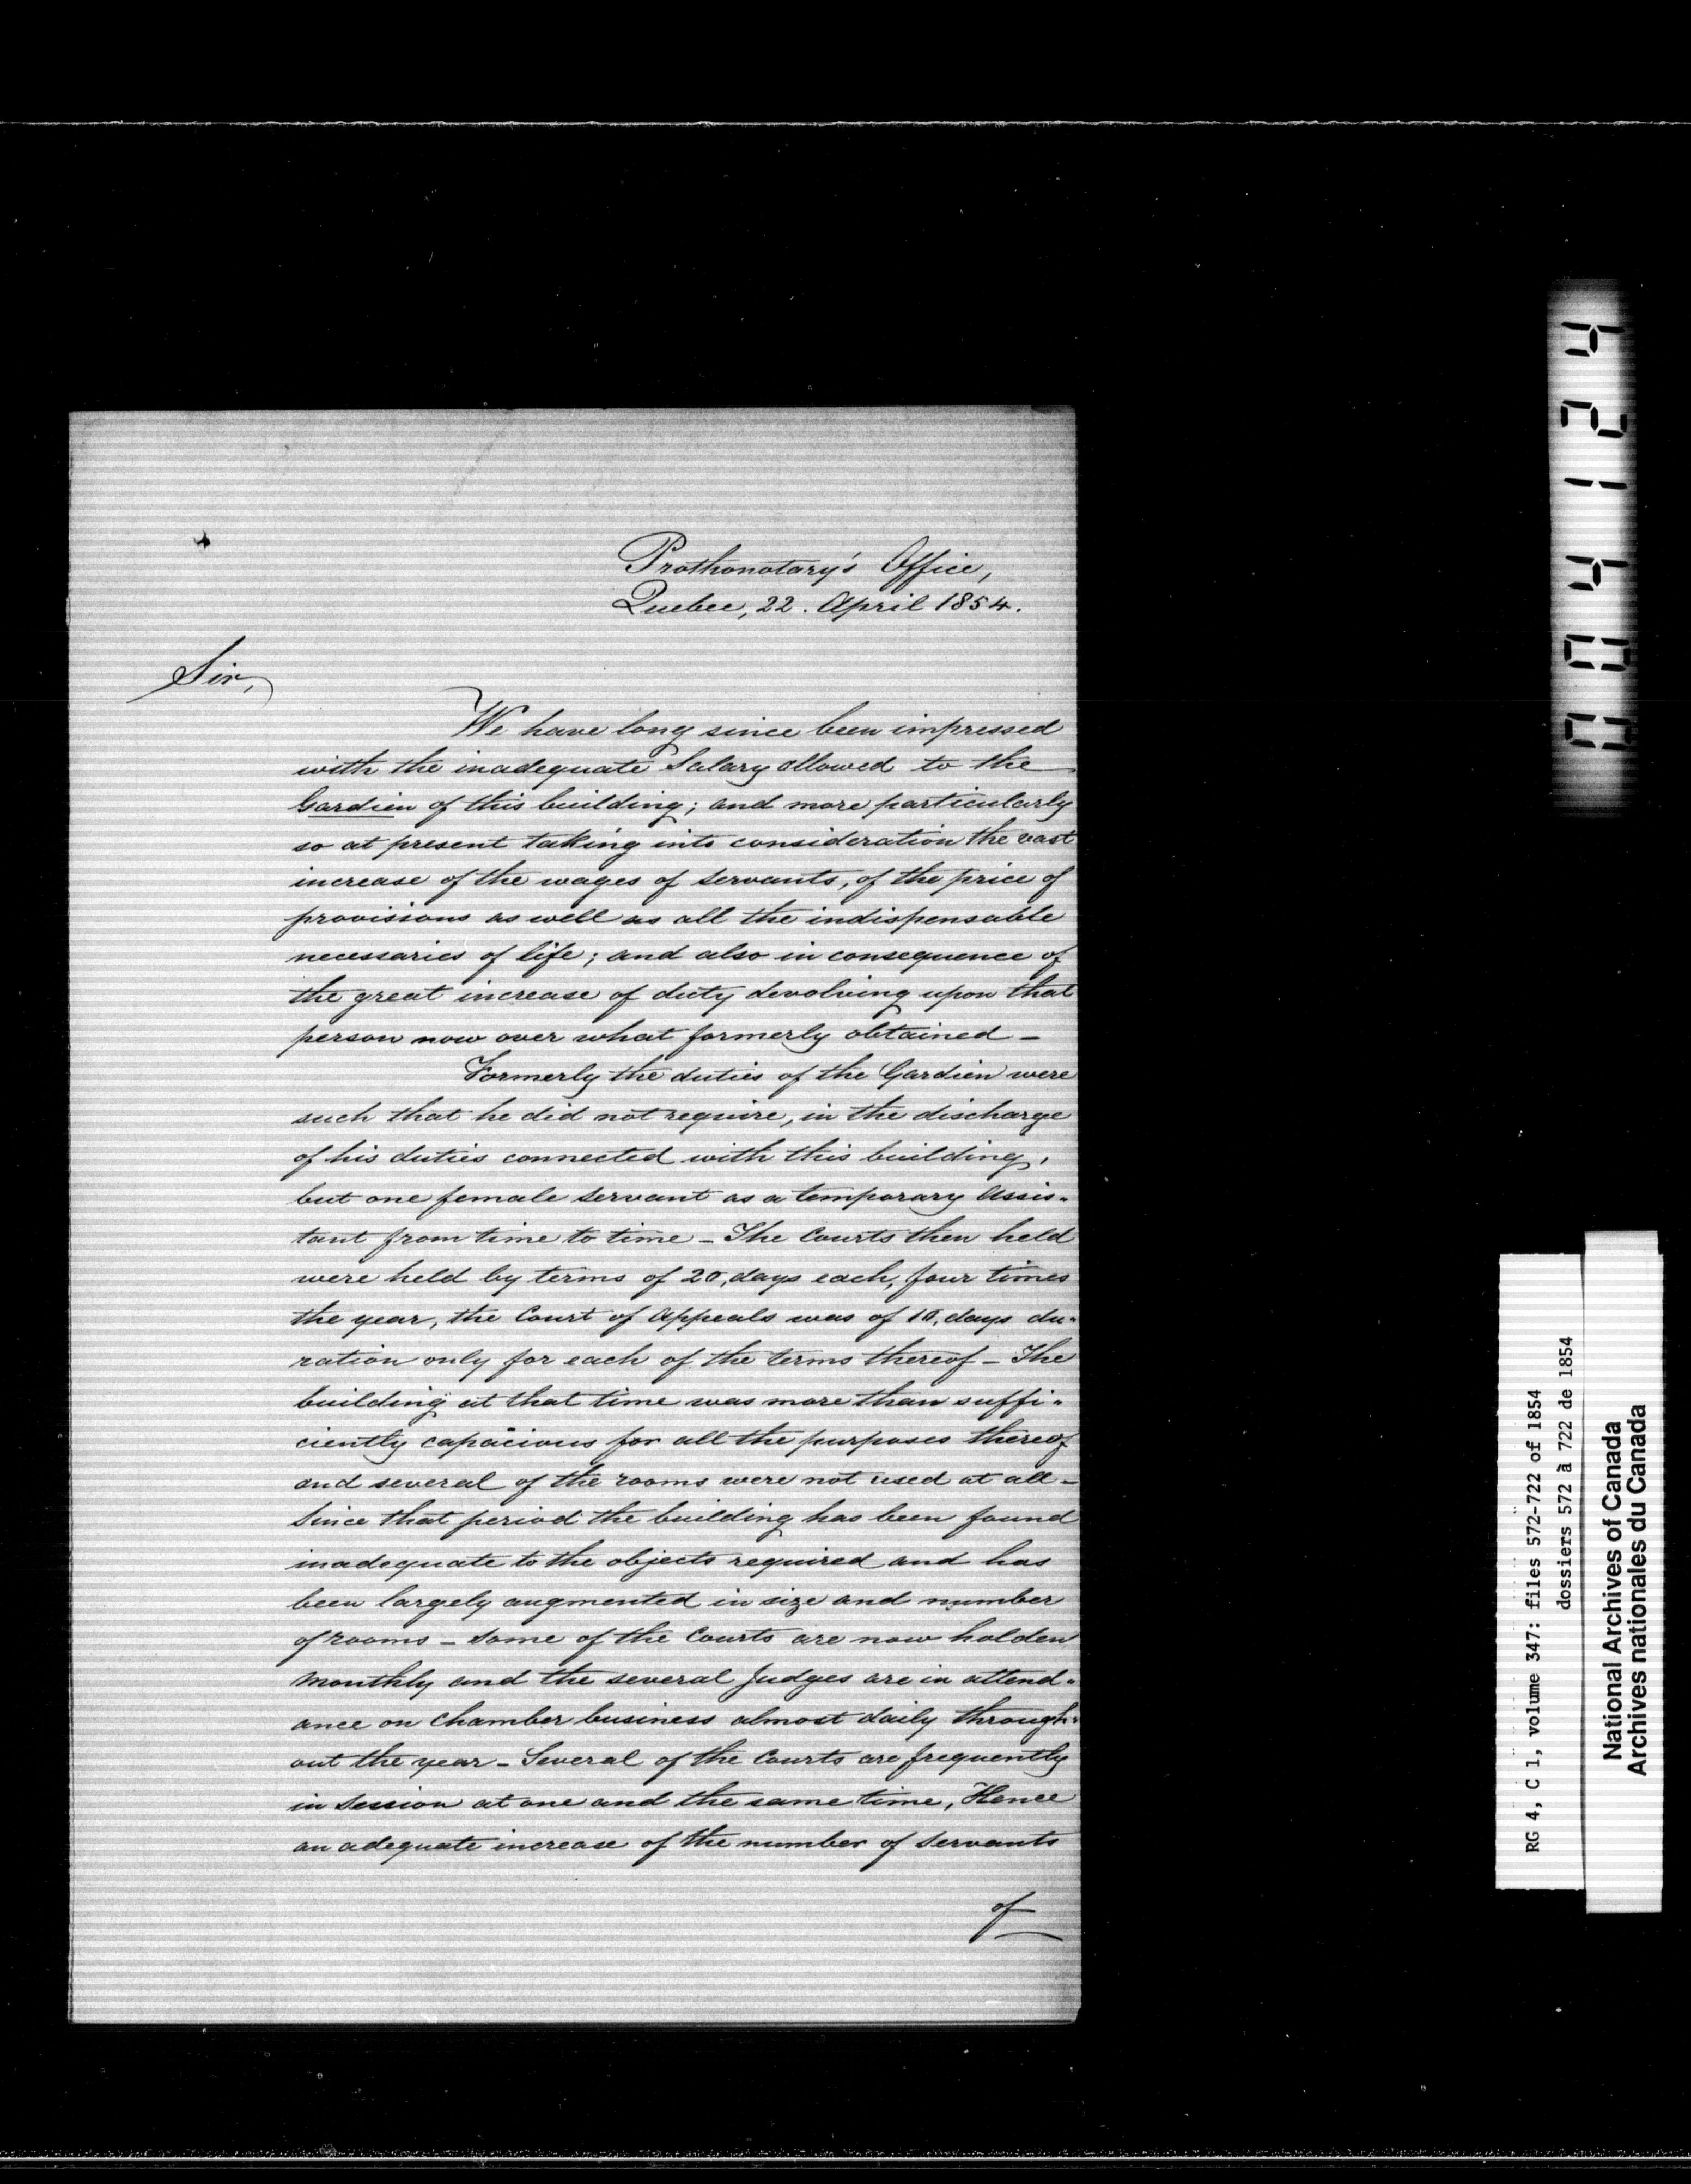 Prothonotary's Office,
Quebec, 22. April 1854.
Sir,
We have long since been impressed
with the inadequate Salary allowed to the
Gardien of this building; and more particularly
so at present taking into consideration the vast
increase of the wages of servants, of the price of
provisions as well as all the indispensable
necessaries of life; and also in consequence of
the great increase of duty devolving upon that
person now over what formerly obtained -
Formerly the duties of the Gardien were
such that he did not require, in the discharge
of his duties connected with this building,
but one female servant as a temporary assis-
tant from time to time - The Courts then held
were held by terms of 20, days each, four times
the year, the Court of Appeals was of 10, days du-
ration only for each of the terms thereof - The
building at that time was more than suffi-
ciently capacious for all the purposes thereof
and several of the rooms were not used at all -
Since that period the building has been found
inadequate to the objects required and has
been largely augmented in size and number
of rooms - some of the Courts are now holden
monthly and the several Judges are in attend-
ance on chamber business almost daily through-
out the year - Several of the Courts are frequently
in session at one and the same time, Hence
an adequate increase of the number of servants
of
04124
RG 4, C 1, volume 347: files 572-722 of 1854
dossiers 572 à 722 de 1854
National Archives of Canada
Archives nationales du Canada